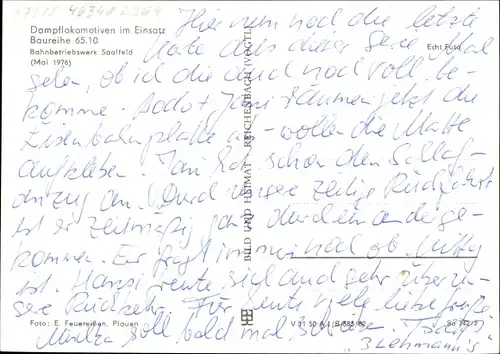 Dampflokomotiven im Einsatz
Baureihe 65.10
Bahnbetriebswerk Saalfeld
(Mai 1976)
Echt Foto
Hier nun noch die letzte
Karte aus dieser Serie. Mal
sehen, ob ich die auch noch voll be-
komme. Bodo + Jan räumen jetzt die
Eisenbahnplatte ab - wollen die Matte
aufkleben. Jan hat schon den Schlaf-
anzug an. Durch unsere zeitige Rückfahrt
ist er zeitmäßig ganz durcheinanderge-
kommen. Er fragt immer noch ob
ist. Hansi freute sich auch sehr über
Rückkehr. Für heute viele liebe Grüße
soll bald mal
3 Lehmann's
BILD UND HEIMAT REICHENBACH (VOGTL)
Foto: E. Feuereißen, Plauen
V 11 50 A 1/B 885/82